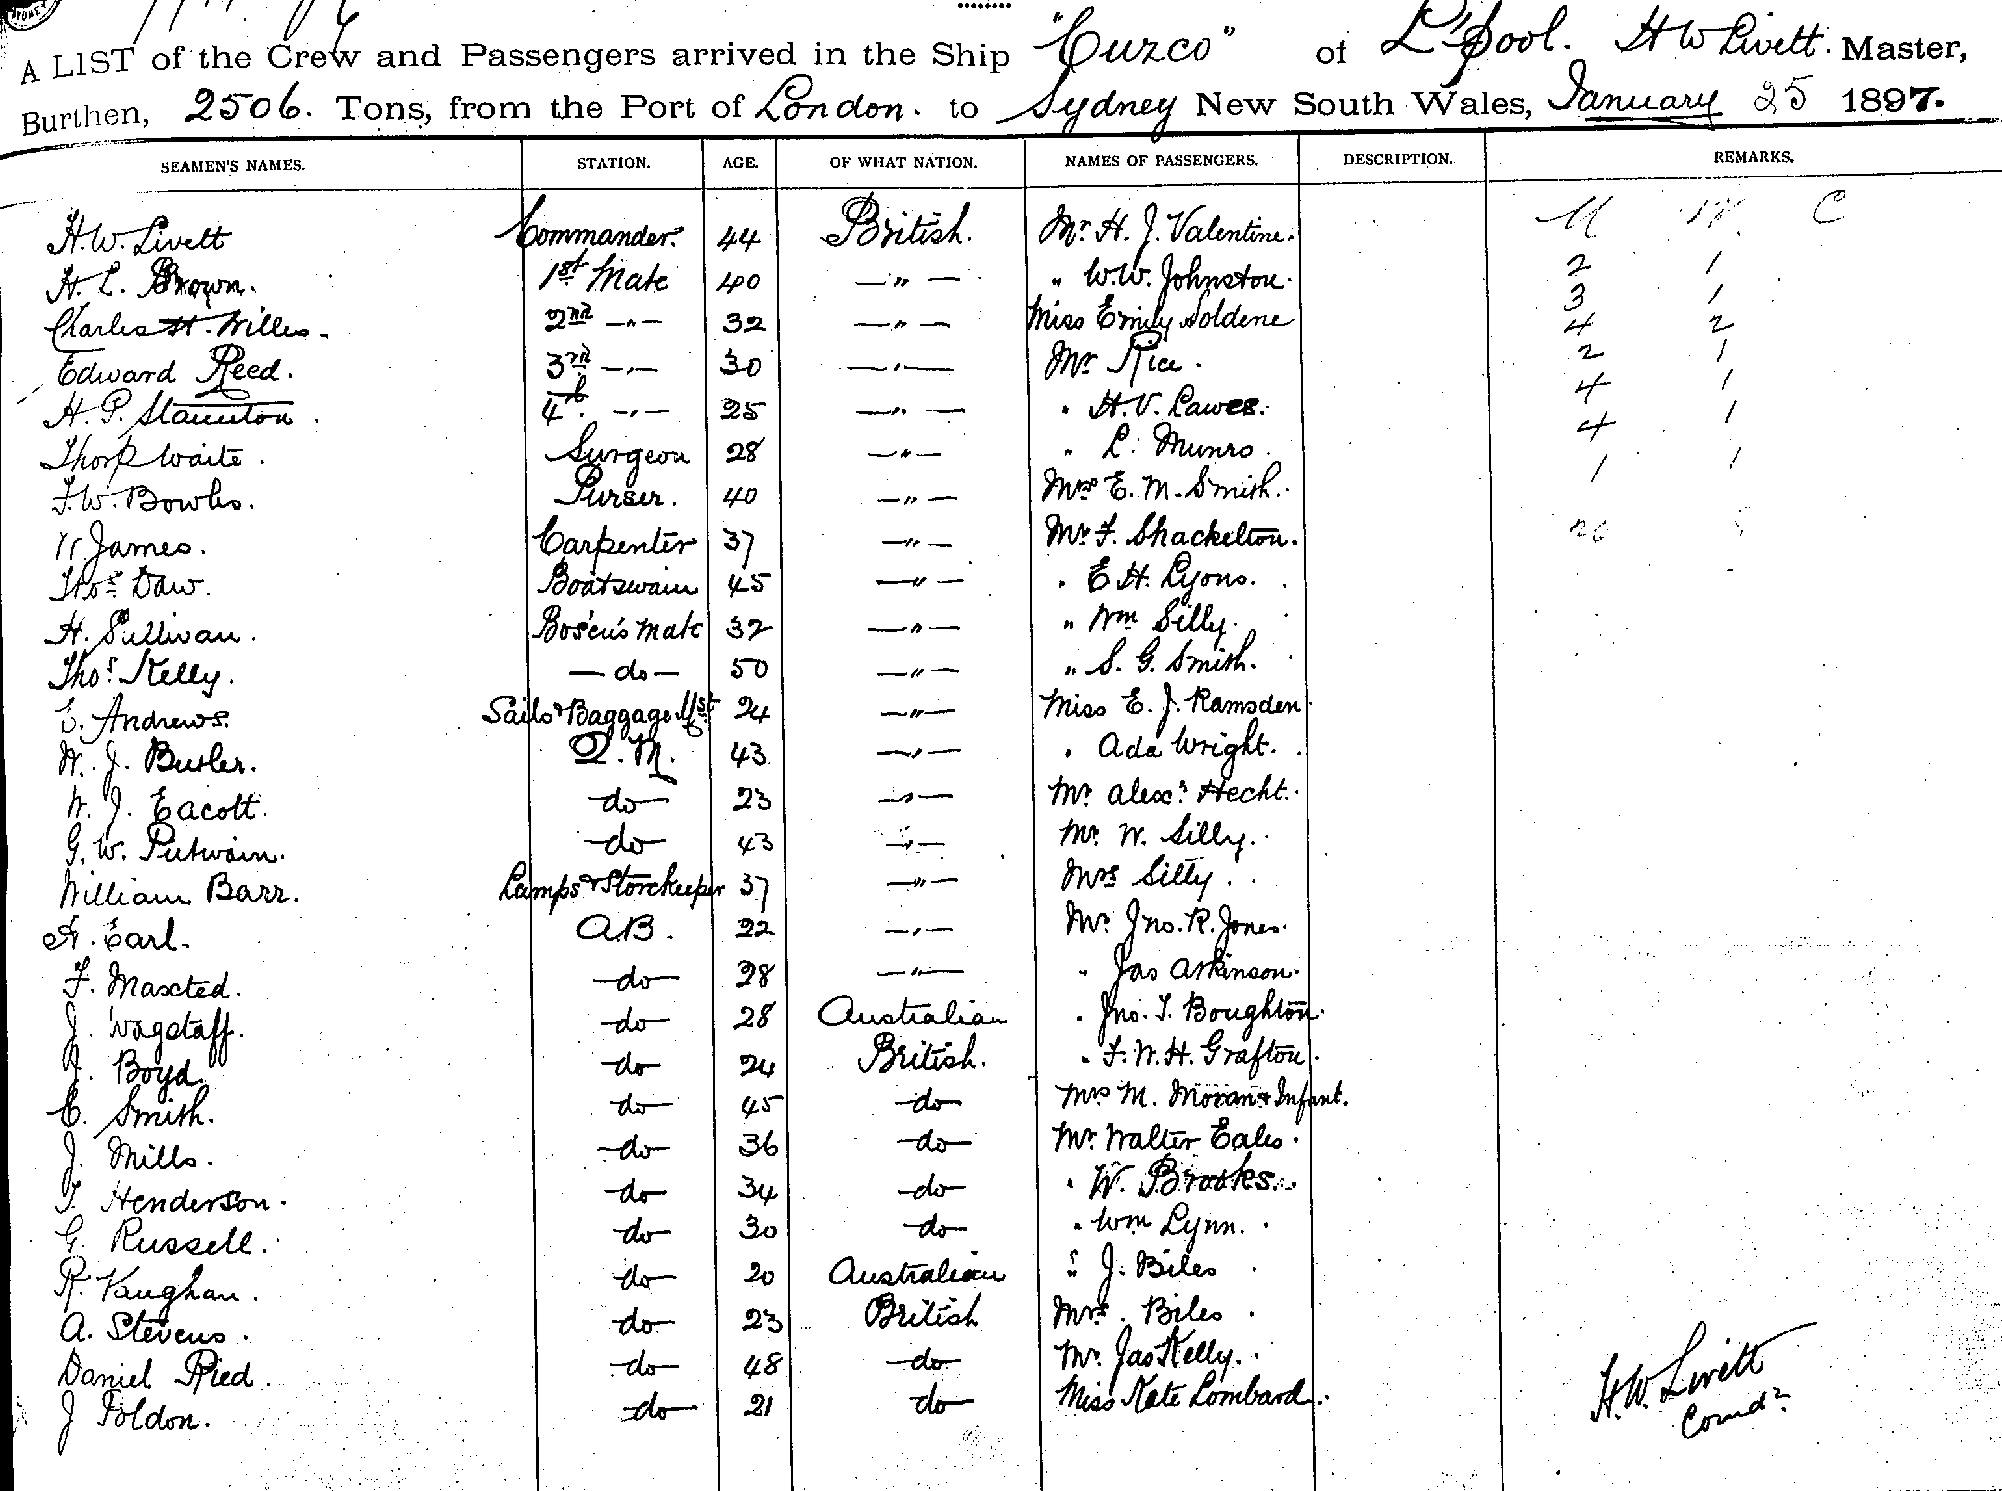 A LIST of the Crew and Passengers arrived in the Ship "Cuzco" of L'pool. H W Livett. Master,
Burthen, 2506. Tons, from the Port of London. to Sydney New South Wales, January 25 1897.
SEAMEN'S NAMES. STATION. AGE. OF WHAT NATION. NAMES OF PASSENGERS. DESCRIPTION. REMARKS.
H.W. Livett Commander. 44 British. Mr. H. J. Valentine. M W C
H. L. Brown. 1st Mate 40 — " — " W.W. Johnston. 2 1
Charles H. Willes. 2nd — " — 32 — " — Miss Emily Soldene 3 1
4 2
Edward Reed. 3rd — " — 30 — " — Mr Rice. 2 1
H. P. Staunton. 4th. — " — 25 — " — " H. V. Lawes. 4 1
Thorp Waite. Surgeon 28 — " — " L. Munro. 4 1
F.W. Bowles. Purser. 40 — " — Mrs E. M. Smith. 1 1
James. Carpenter 37 — " — Mr F. Shackelton. 20
Thos Daw. Boatswain 45 — " — " E H. Lyons.
H. Sullivan. Bos'en's Mate 32 — " — " Wm Silly.
Thos. Kelly. — do — 50 — " — " S. G. Smith.
E. Andrews. Sails & Baggage Mst 24 — " — Miss E. J. Ramsden
W. J. Butler. Q. M. 43 — " — " Ada Wright.
W. J. Eacott. do 23 — " — Mr Alexr. Hecht.
G. W. Putwain. do 43 — " — Mr. W. Silly.
William Barr. Lamps & Storekeeper 37 — " — Mrs Silly.
A. Earl. A.B. 22 — " — Mr Jno. R. Jones.
F. Maxted. do 28 — " — " Jas Atkinson.
J. Wagstaff. do 28 Australian " Jno. T. Boughton.
J. Boyd. do 24 British. " F. W. H. Grafton.
C. Smith. do 45 do Mrs M. Moran & Infant.
J. Mills. do 36 do Mr. Walter Eales.
T. Henderson. do 34 do " W. Brooks.
G. Russell. do 30 do " Wm Lynn.
R. Vaughan. do 20 Australian " J. Biles
A. Stevens. do 23 British Mrs. Biles
Daniel Ried. do 48 do Mr. Jas Kelly.
J Foldon. do 21 do Miss Kate Lombard.
H. W. Livett
Comdr.